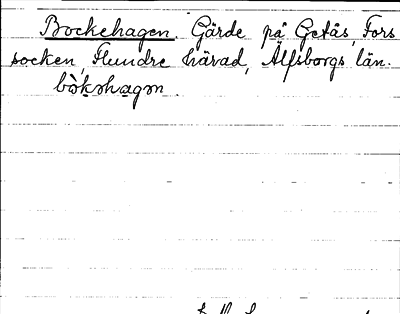 Bockehagen. Gärde på Getås, Fors
socken, Flundre härad, Älfsborgs län.
bòkehagen.